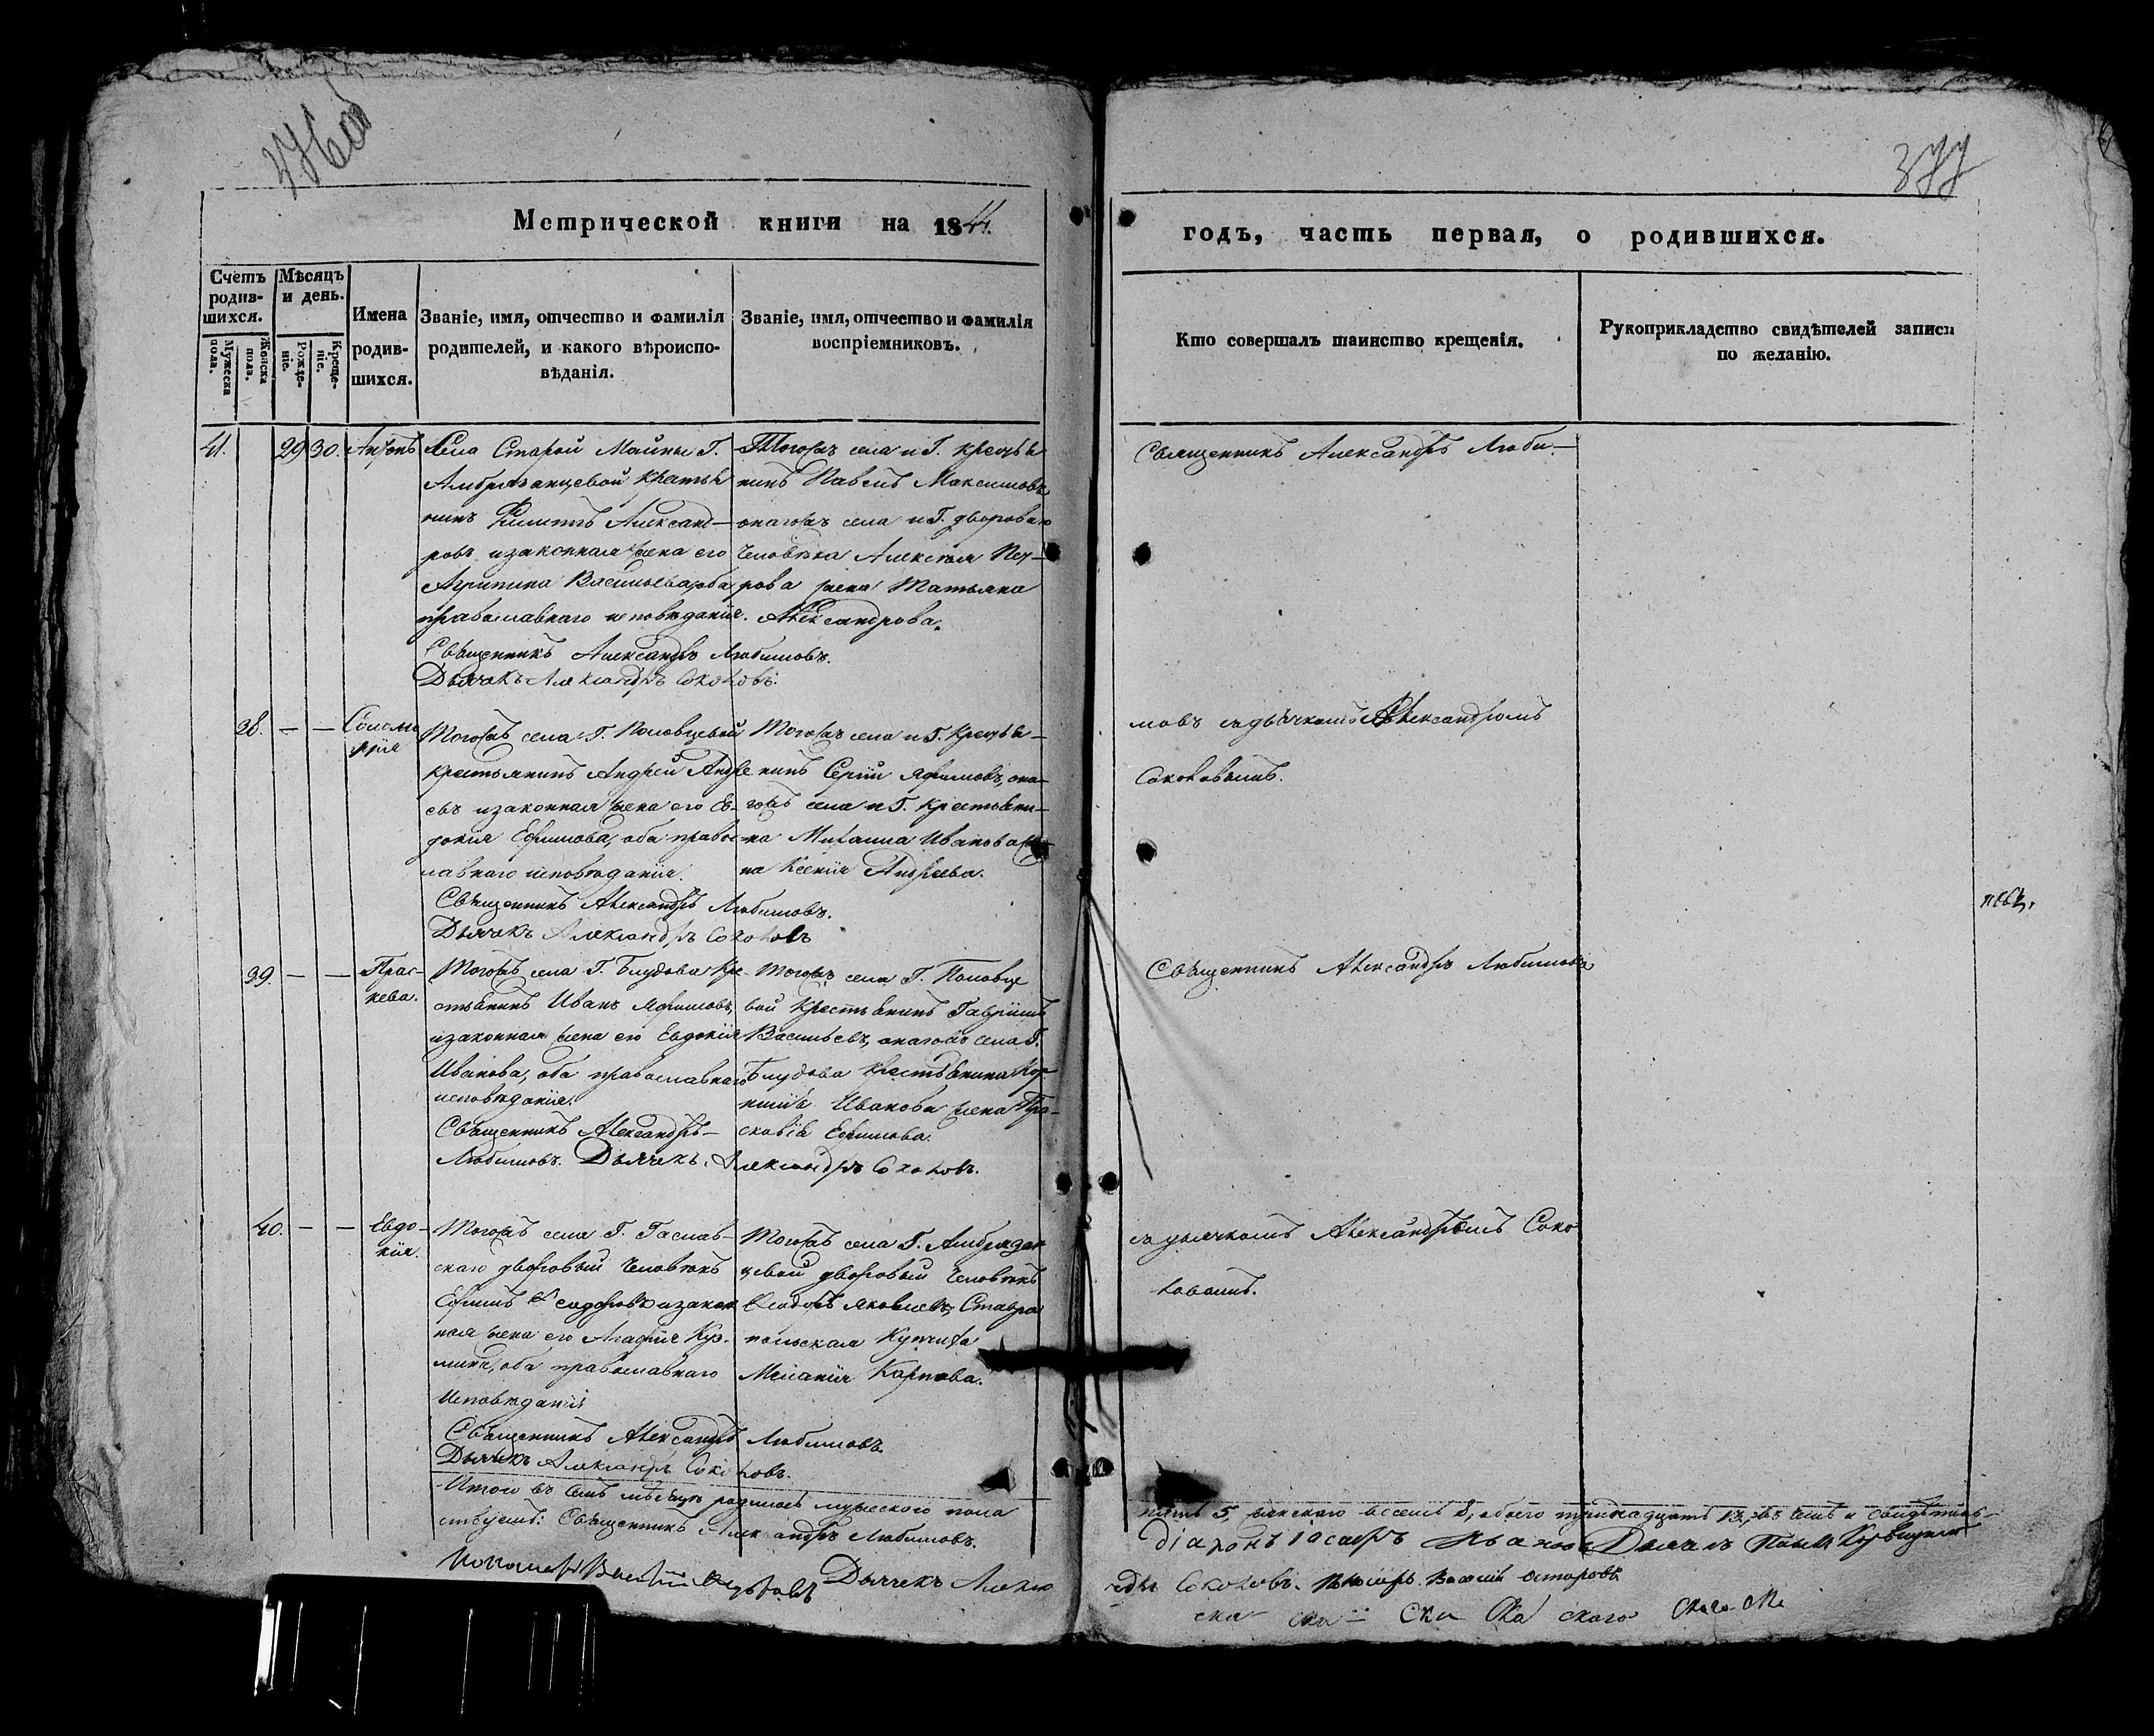 376 об
377
Метрической книги на 1844.
годъ, часть первая, о родившихся.
Счетъ родив-
шихся.
Мужеска пола.
Женска пола.
Мѣсяцъ и день.
Рожде-
ніе.
Креще-
ніе.
Имена
родив-
шихся.
Званіе, имя, отчество и фамилія
родителей, и какого вѣроиспо-
вѣданія.
Званіе, имя, отчество и фамилія
воспріемниковъ.
Кто совершалъ таинство крещенія.
Рукоприкладство свидѣтелей записи
по желанію.
41.
29
30.
Антонъ
Села Старой Майны Г.
Амбразанцевой крестья
нинъ Филиппъ Александ-
ровъ и законная жена его
Агрипина Васильева, оба
православнаго исповѣданія.
Священникъ Александръ Любимовъ.
Дьячекъ Александръ Соколовъ.
Тогожъ села и Г. крестья
нинъ Павелъ Максимовъ
онагожъ села и Г. дворова
человѣка Алексѣя Пет-
рова жена Татьяна
Александрова.
Священникъ Александръ Люби-
38.
—
—
Соломо
нія
Тогожъ села Г. Половцевой
крестьянинъ Андрей Андре
евъ и законная жена его Ев-
докія Ефимова, оба правос-
лавнаго исповѣданія.
Священникъ Александръ Любимовъ.
Дьячекъ Александръ Соколовъ
Тогожъ села и Г. крестья-
нинъ Сергій Яфимовъ, она-
гожъ села и Г. крестьяни-
на Михаила Иванова же-
на Ксенія Андреева.
мовъ съ дьячкомъ Александромъ
Соколовымъ.
39.
—
—
Прас-
кева.
Тогожъ села Г. Блудова кре-
стьянинъ Иванъ Яфимовъ,
и законная жена его Евдокія
Иванова, оба православнаго
исповѣданія.
Священникъ Александръ-
Любимовъ. Дьячекъ Александръ Соколовъ.
Тогожъ села Г. Половце
вой крестьянинъ Гавріилъ
Васильевъ, онагожъ села Г.
Блудова крестьянина Кор
нилія Иванова жена Пра-
сковія Ефимова.
Священникъ Александръ Любимовъ
40.
—
—
Евдо-
кія.
Тогожъ села Г.
скаго дворовый человѣкъ
Ефимъ Ѳедоровъ и закон
ная жена его Агафія Куз-
мина, оба православнаго
исповѣданія
Священникъ Александръ Любимовъ.
Дьячекъ Александръ Соколовъ.
Тогожъ села Г. Амбразан
цевой дворовый человѣкъ
Ѳедоръ Яковлевъ, Ставро
польская купчиха
Меланія Карпова.
съ дьячкомъ Александромъ Соко
ловымъ.
Итого въ семъ мѣсяцѣ родилось мужескаго пола
пять 5, женскаго восемь 8, обоего тринадцать 13, въ чемъ и свидѣтель-
ствуемъ: Священникъ Александръ Любимовъ.
Діаконъ Дьячекъ
Пономарь Василій Дьячекъ Алекса
ндръ Соколовъ. Пономарь Василій
ска ска ска ска скаго